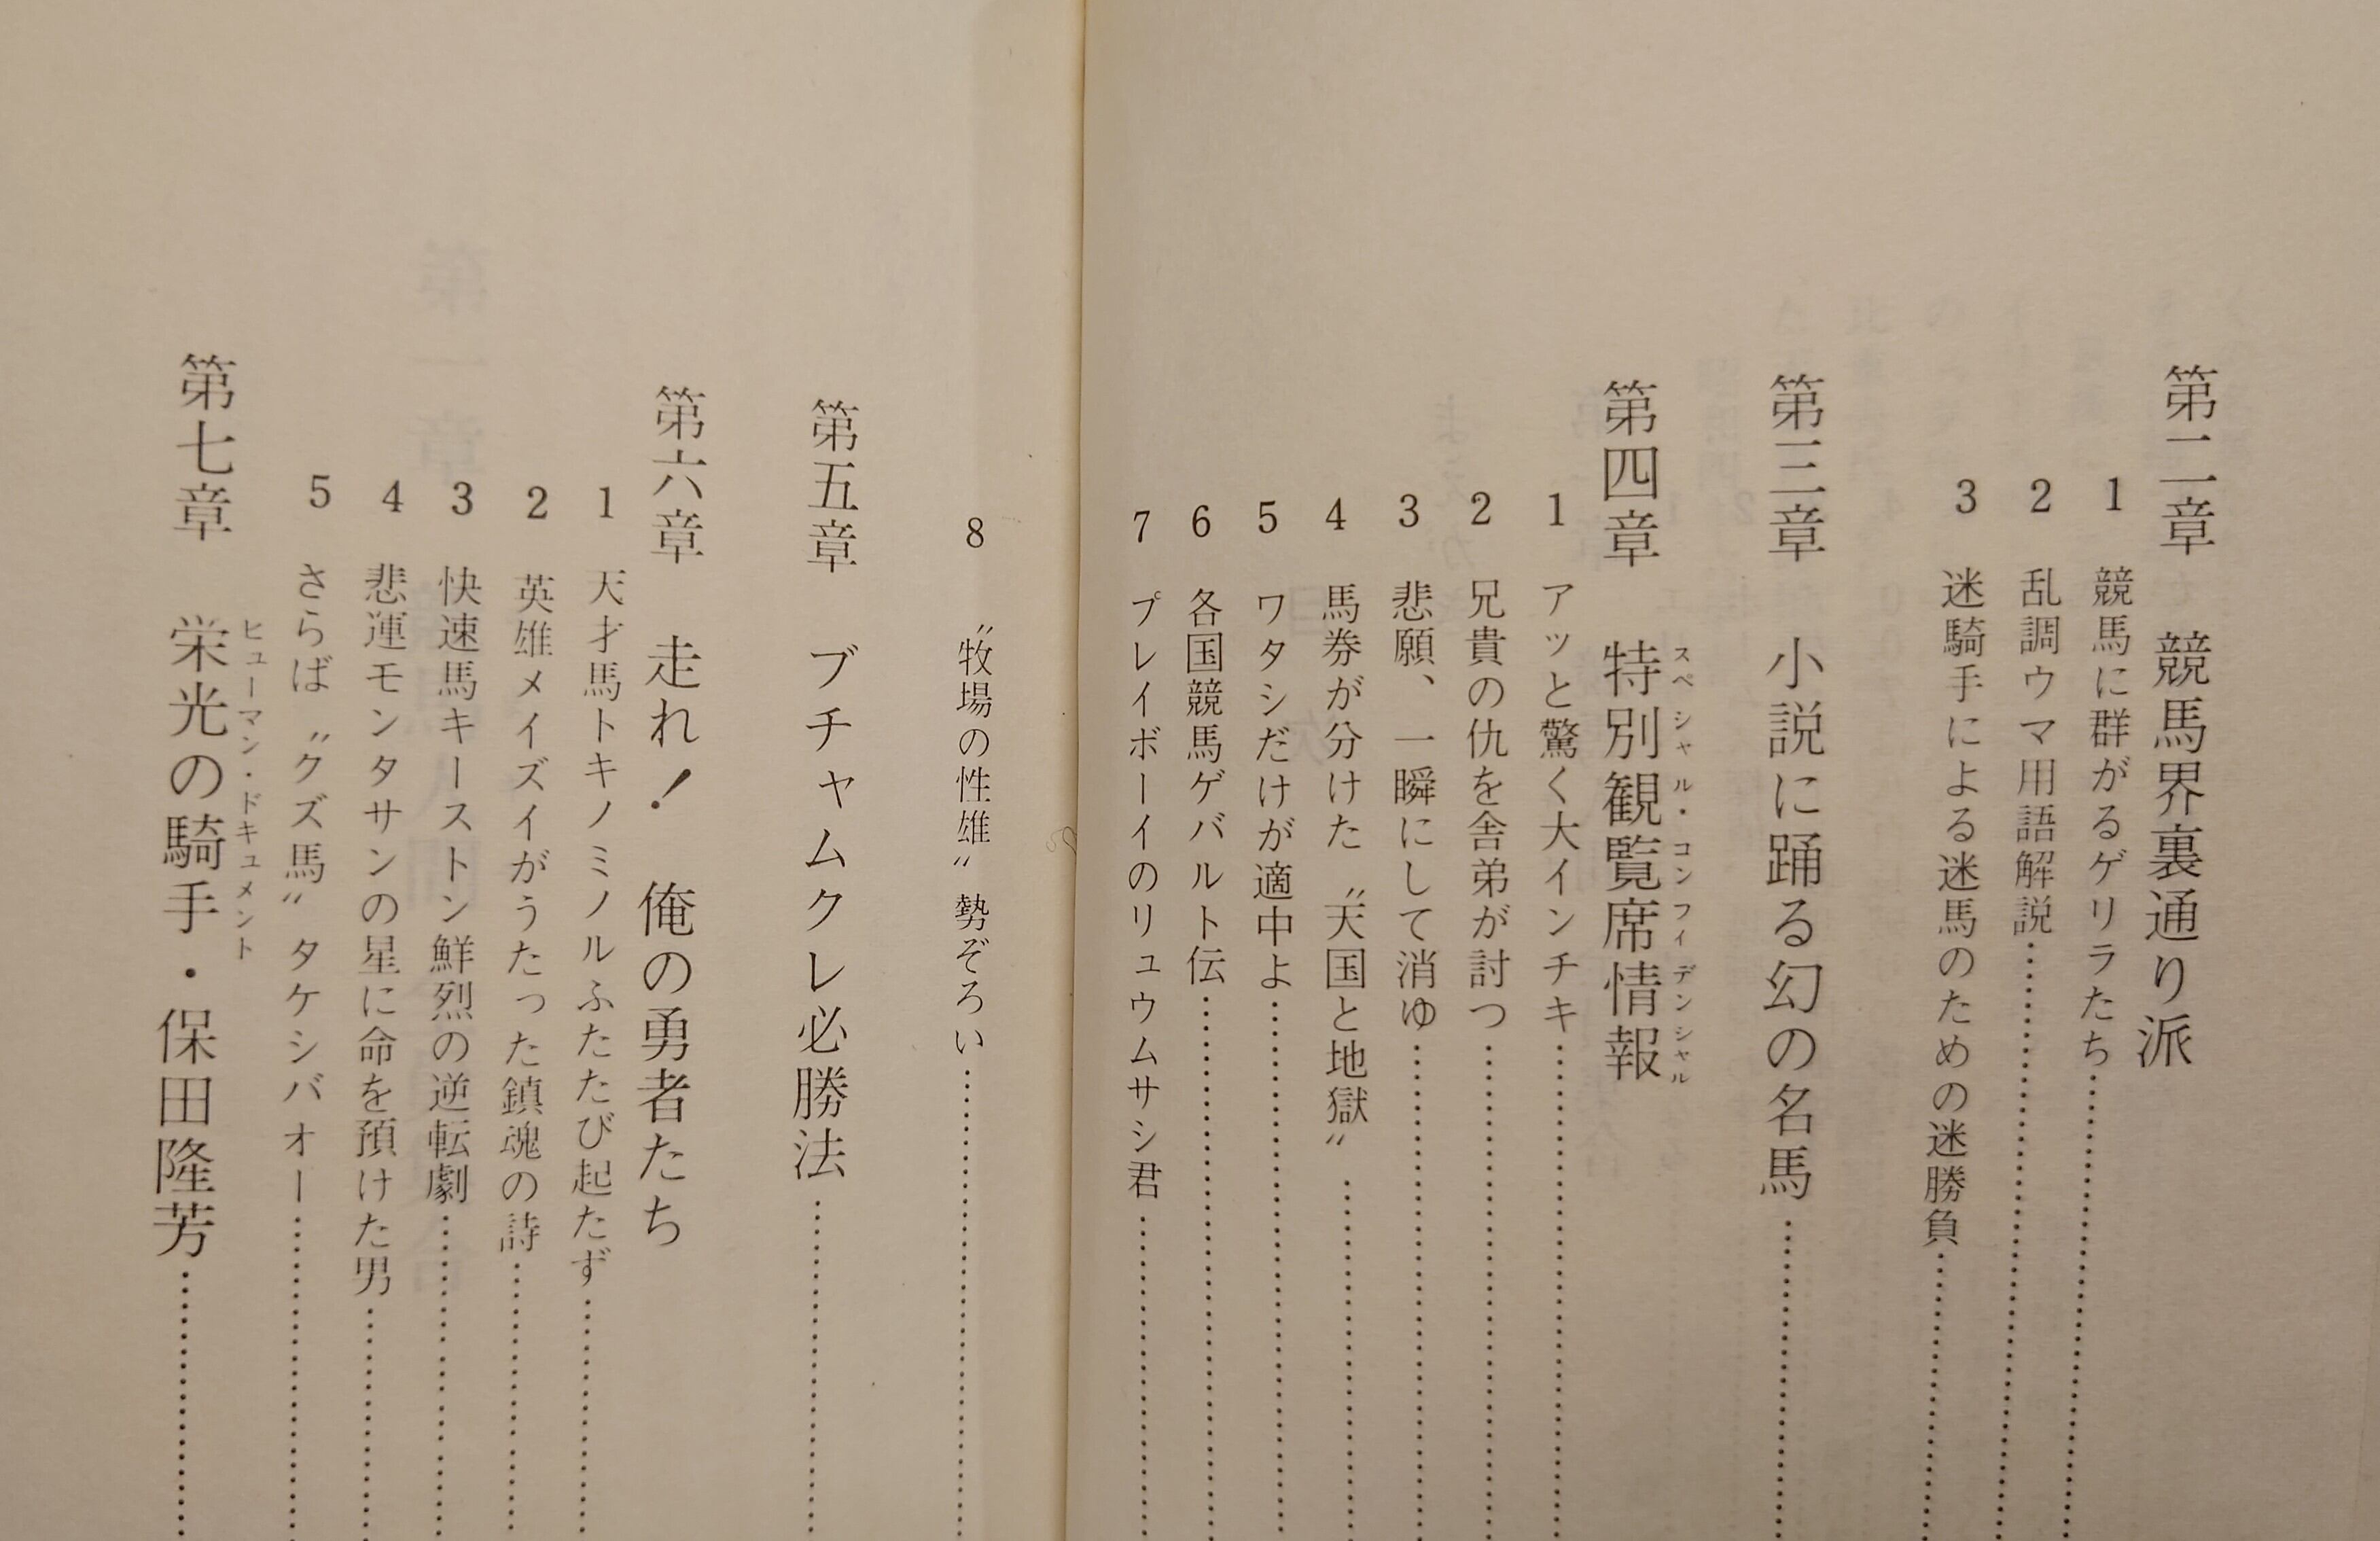 第二章　競馬界裏通り派
1　競馬に群がるゲリラたち…………
2　乱調ウマ用語解説…………
3　迷騎手による迷馬のための迷勝負…………
第三章　小説に踊る幻の名馬…………
第四章　特別観覧席情報
スペシャル・コンフィデンシャル
1　アッと驚く大インチキ…………
2　兄貴の仇を舎弟が討つ…………
3　悲願、一瞬にして消ゆ…………
4　馬券が分けた〝天国と地獄〟…………
5　ワタシだけが適中よ…………
6　各国競馬ゲバルト伝…………
7　プレイボーイのリュウムサシ君…………
8　〝牧場の性雄〟勢ぞろい…………
第五章　ブチャムクレ必勝法…………
第六章　走れ！　俺の勇者たち
1　天才馬トキノミノルふたたび起たず…………
2　英雄メイズイがうたった鎮魂の詩…………
3　快速馬キーストン鮮烈の逆転劇…………
4　悲運モンタサンの星に命を預けた男…………
5　さらば〝クズ馬〟タケシバオー…………
第七章　栄光の騎手・保田隆芳…………
ヒューマン・ドキュメント